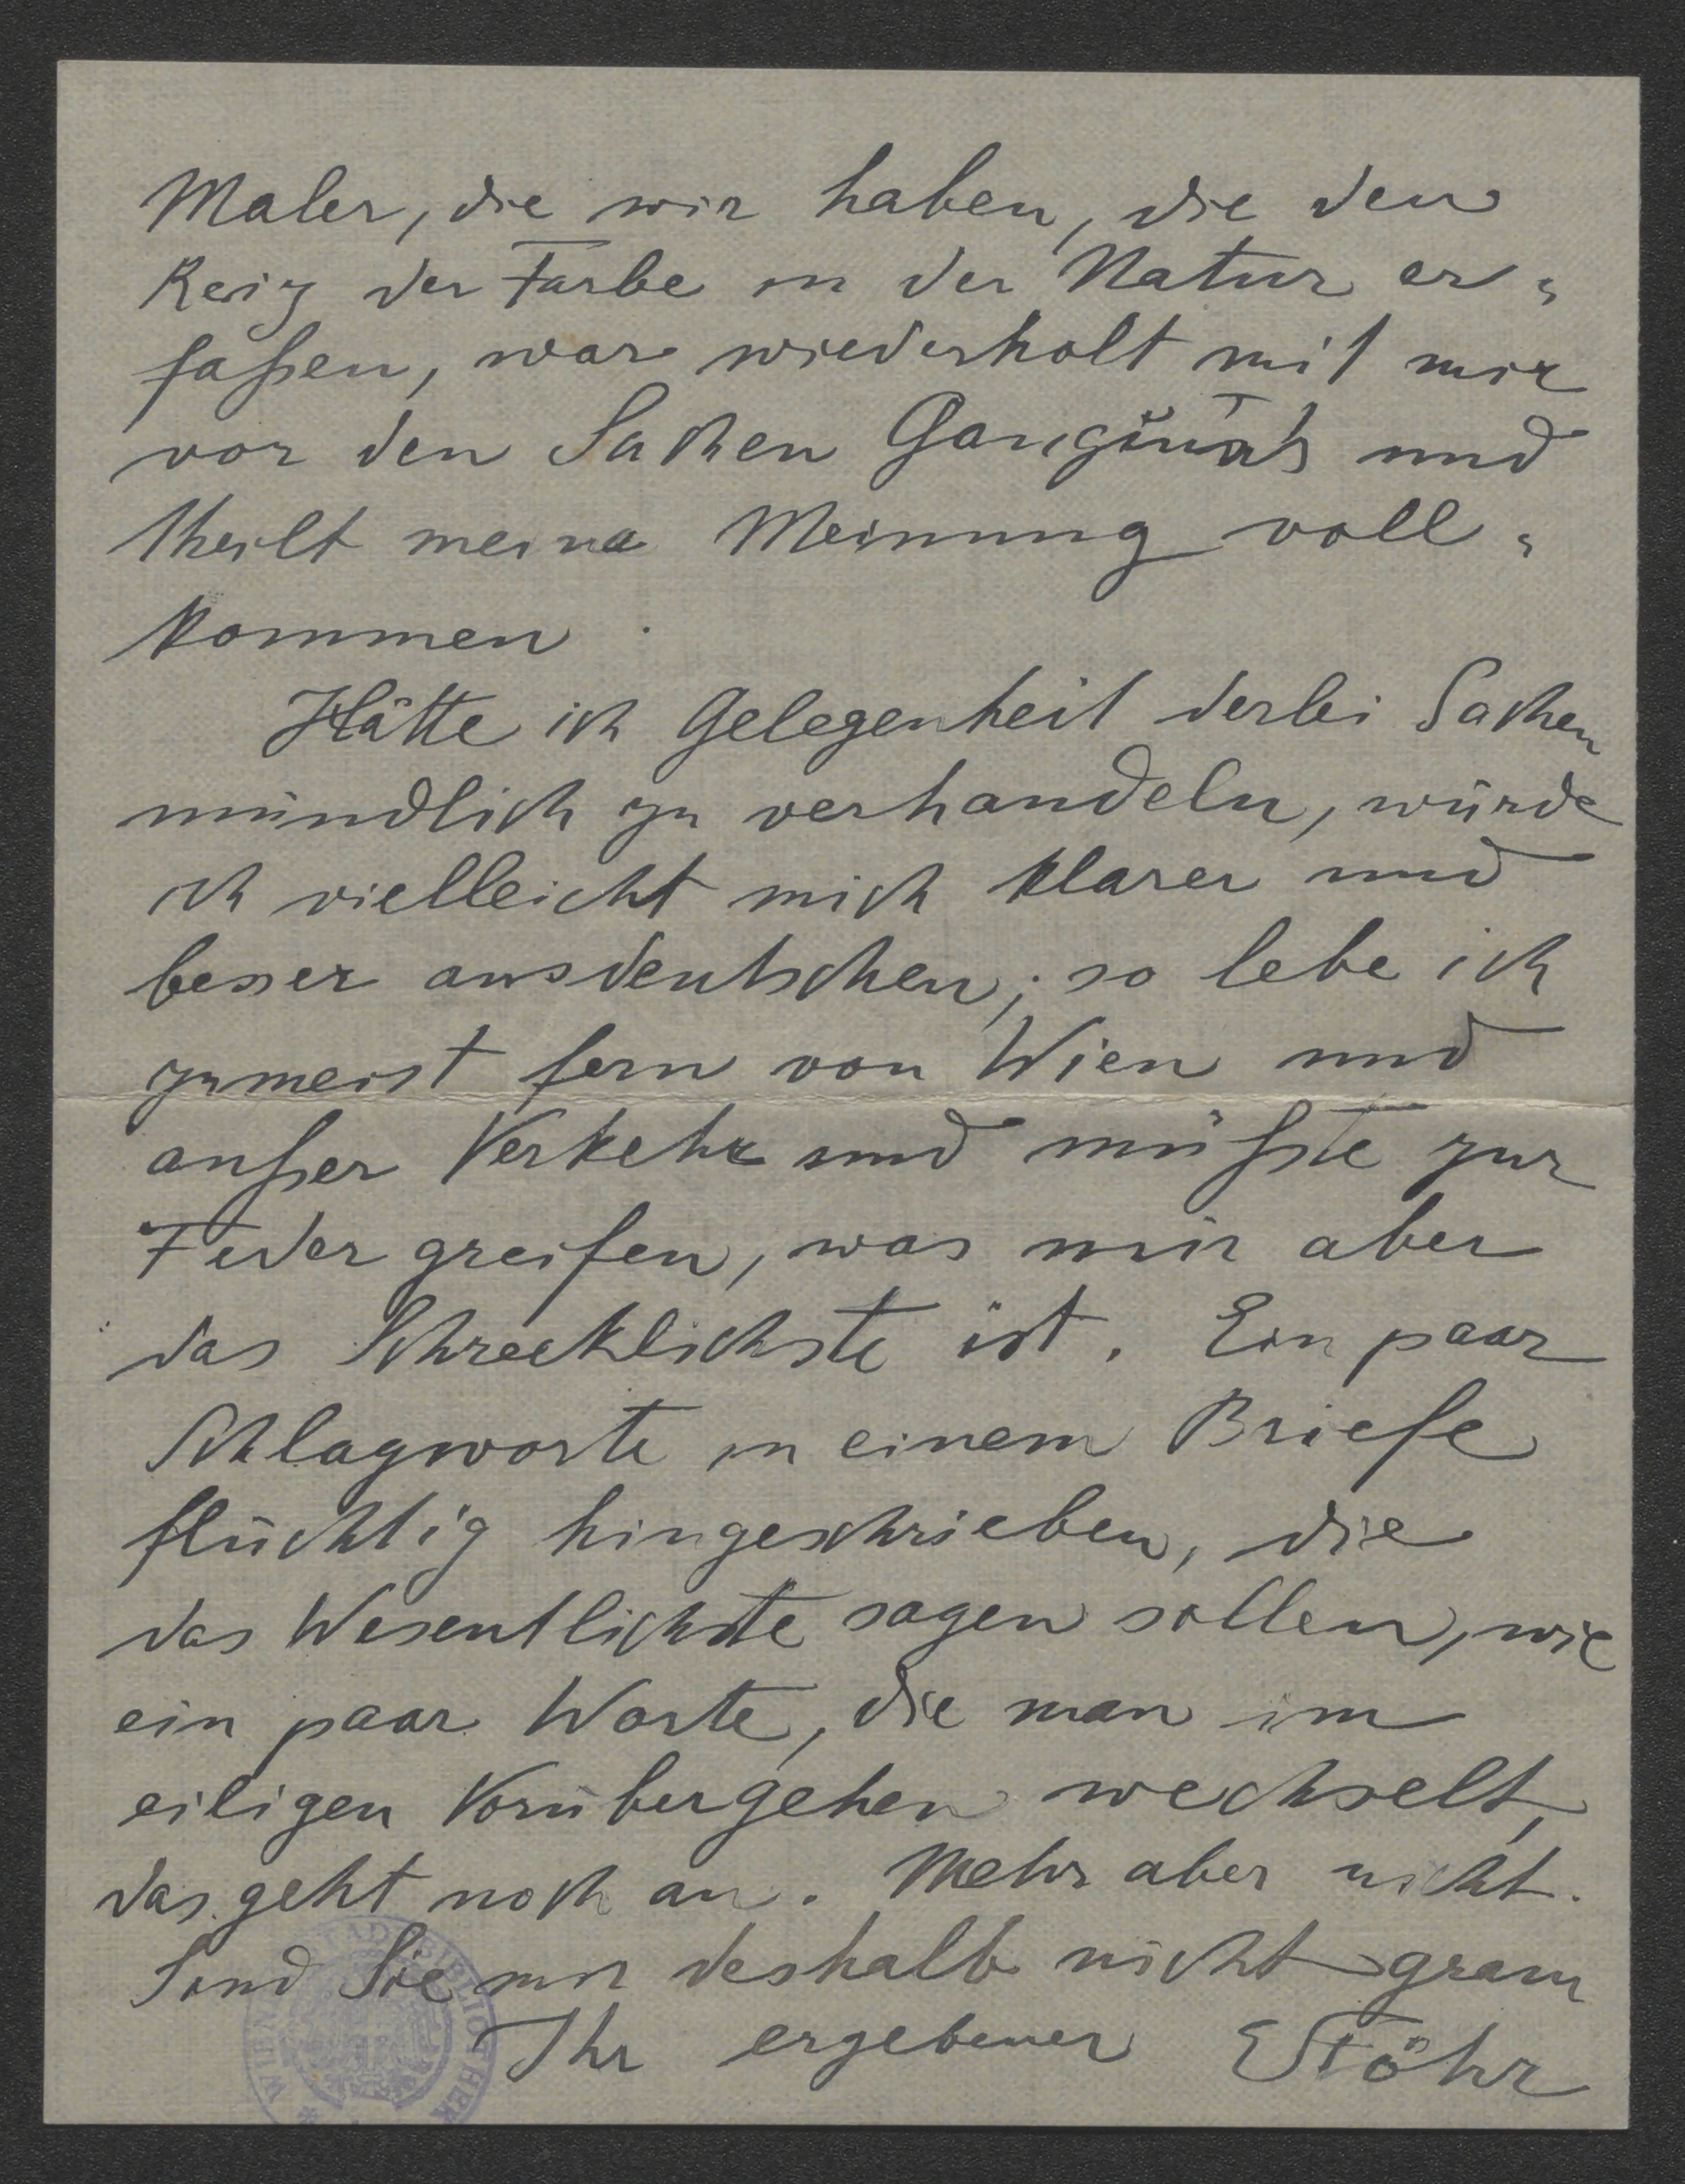 Maler, die wir haben, die den
Reiz der Farbe in der Natur er=
faßen, war wiederholt mit mir
vor den Sachen Gauguins und
theilt meine Meinung voll=
kommen.
Hätte ich Gelegenheit derlei Sachen
mündlich zu verhandeln, würde
ich vielleicht mich klarer und
besser ausdeutschen; so lebe ich
zumeist fern von Wien und
außer Verkehr und müßte zur
Feder greifen, was mir aber
das Schrecklichste ist. Ein paar
Schlagworte in einem Briefe
flüchtig hingeschrieben, die
das Wesentlichste sagen sollen, wie
ein paar Worte, die man im
eiligen Vorübergehen wechselt,
das geht noch an. Mehr aber nicht.
Sind Sie mir deshalb nicht gram
Ihr ergebener EStöhr